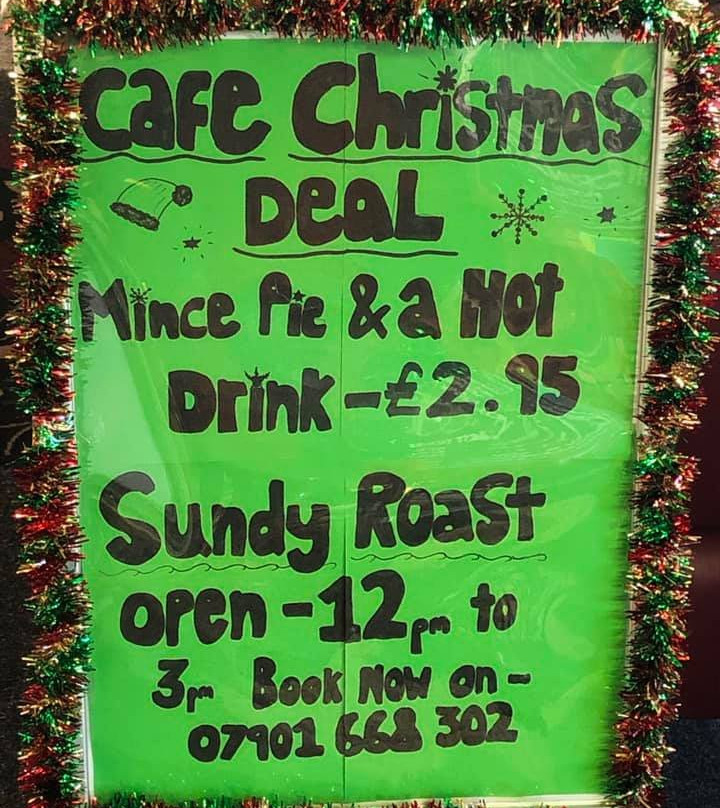 Cafe Christmas
Deal
Mince Pie & a Hot
Drink - £2.95
Sundy Roast
open - 12pm to
3pm Book Now on -
07901 668 302